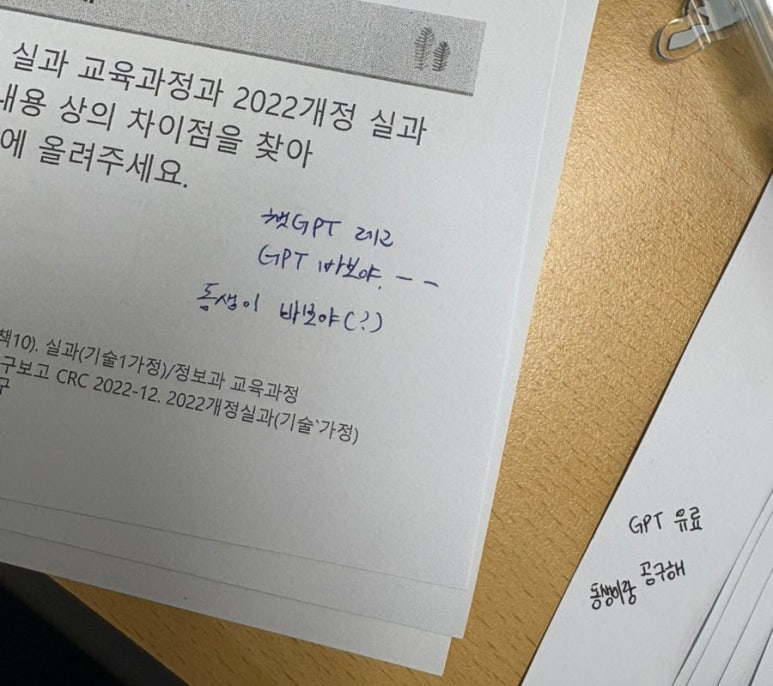 실과 교육과정과 2022개정 실과
내용 상의 차이점을 찾아
에 올려주세요.
챗GPT
GPT 바보야. ㅡㅡ
동생이 바보야(?)
책10). 실과(기술1가정)/정보과 교육과정
구보고 CRC 2022-12. 2022개정실과(기술`가정)
구
GPT 유료
동생이랑 공구해